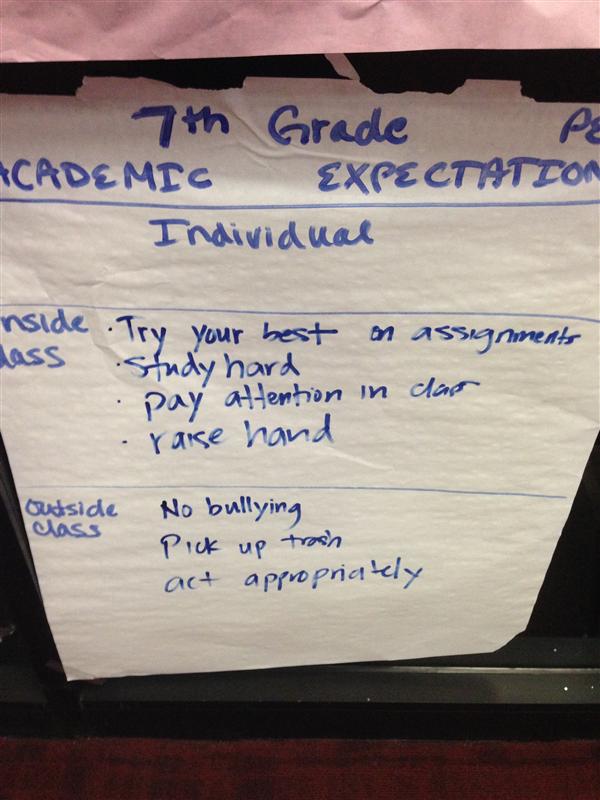 7th Grade Pe
ACADEMIC EXPECTATION
Individual
nside class
· Try your best on assignments
· Study hard
· pay attention in class
· raise hand
outside class
No bullying
Pick up trash
act appropriately